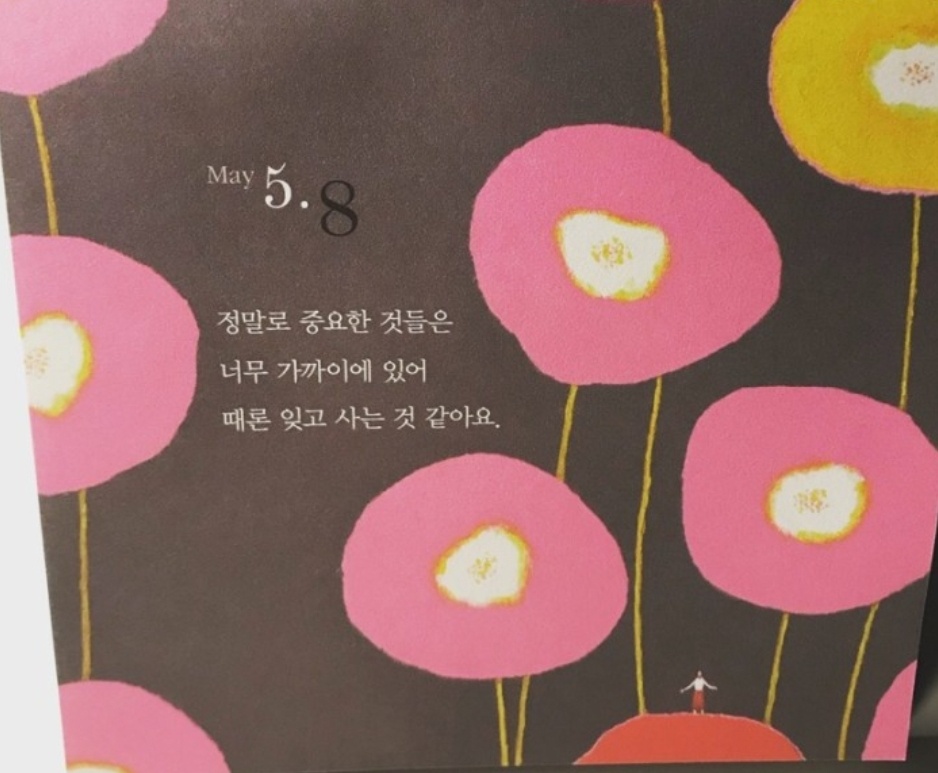 May 5. 8
정말로 중요한 것들은
너무 가까이에 있어
때론 잊고 사는 것 같아요.